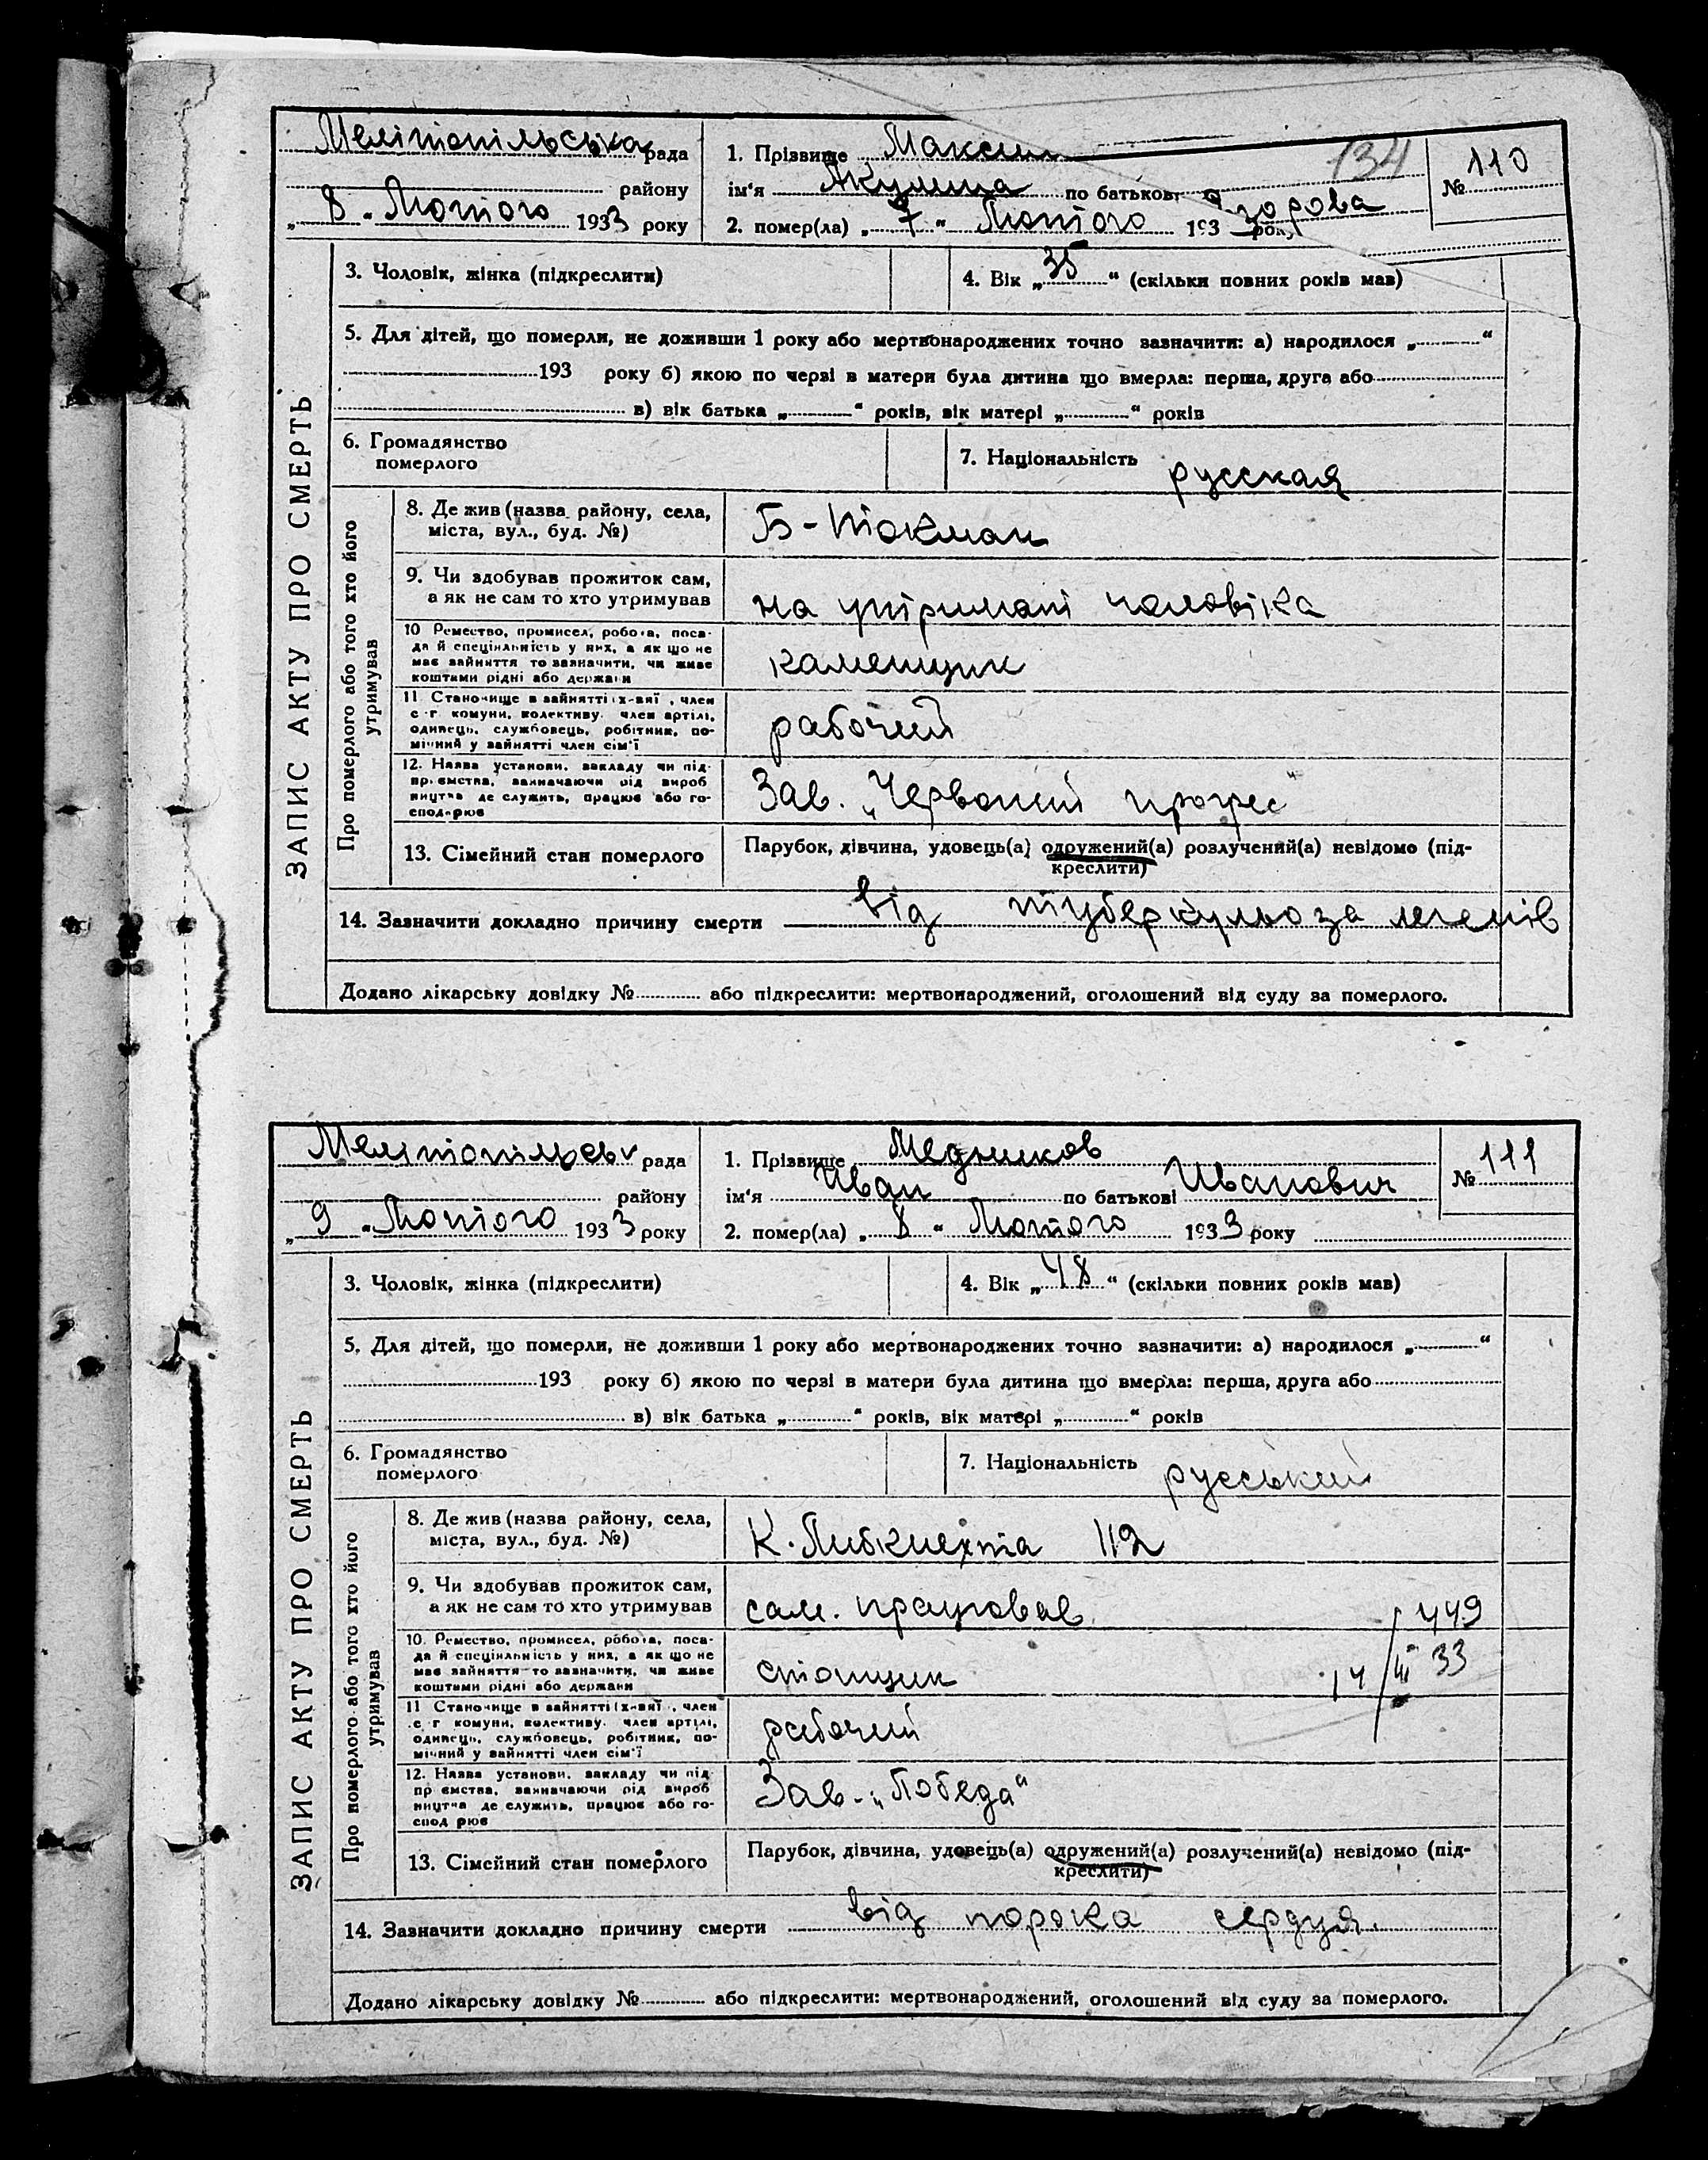 134
Мелітопільська рада
району
„ 8 " Лютого 1933 року
1. Прізвище Максим
ім'я Акулина по батькові
2. помер(ла) „ 7 " Лютого 1933 року
№ 110
3. Чоловік, жінка (підкреслити)
4. Вік „ 35 " (скільки повних років мав)
5. Для дітей, що померли, не доживши 1 року або мертвонароджених точно зазначити: а) народилося „ "
193 року б) якою по черзі в матери була дитина що вмерла: перша, друга або
в) вік батька „ " років, вік матері „ " років
6. Громадянство
померлого
7. Національність русская
ЗАПИС АКТУ ПРО СМЕРТЬ
Про померлого або того хто його
утримував
8. Де жив (назва району, села,
міста, вул., буд. №)
Б-Токмак
9. Чи здобував прожиток сам,
а як не сам то хто утримував
на утримані чоловіка
10 Ремество, промисел, робота, поса-
да й спеціяльність у них, а як що не
має зайняття то зазначити, чи живе
коштами рідні або держави
каменщик
11 Становище в зайнятті (х-вяї, член
с-г комуни, колективу. член артілі,
одинець, службовець, робітник, по-
мічний у зайнятті член сім'ї
рабочий
12. Назва установи, закладу чи під-
приємства, зазначаючи рід вироб
ництва де служить, працює або го-
сподарює
Зав. „Червоний прогрес"
13. Сімейний стан померлого
Парубок, дівчина, удовець(а) одружений(а) розлучений(а) невідомо (під-
креслити)
14. Зазначити докладно причину смерти від туберкульоза легенів
Додано лікарську довідку № або підкреслити: мертвонароджений, оголошений від суду за померлого.
Мелітопільськ рада
району
„ 9 " Лютого 1933 року
1. Прізвище Медников
ім'я Иван по батькові Иванович
2. помер(ла) „ 8 " Лютого 1933 року
№ 111
3. Чоловік, жінка (підкреслити)
4. Вік „ 48 " (скільки повних років мав)
5. Для дітей, що померли, не доживши 1 року або мертвонароджених точно зазначити: а) народилося „ "
193 року б) якою по черзі в матери була дитина що вмерла: перша, друга або
в) вік батька „ " років, вік матері „ " років
6. Громадянство
померлого
7. Національність руський
ЗАПИС АКТУ ПРО СМЕРТЬ
Про померлого або того хто його
утримував
8. Де жив (назва району, села,
міста, вул., буд. №)
К. Либкнехта 112
9. Чи здобував прожиток сам,
а як не сам то хто утримував
сам. працював
449
14/III 33
10. Ремество, промисел, робота, поса-
да й спеціяльність у них, а як що не
має зайняття то зазначити, чи живе
коштами рідні або держави
11 Становище в зайнятті (х-вяї, член
с-г комуни, колективу. член артілі,
одинець, службовець, робітник, по-
мічний у зайнятті член сім'ї
рабочий
12. Назва установи, закладу чи під-
приємства, зазначаючи рід вироб
ництва де служить, працює або го-
сподарює
Зав. „Победа"
13. Сімейний стан померлого
Парубок, дівчина, удовець(а) одружений(а) розлучений(а) невідомо (під-
креслити)
14. Зазначити докладно причину смерти від порока сердця.
Додано лікарську довідку № або підкреслити: мертвонароджений, оголошений від суду за померлого.